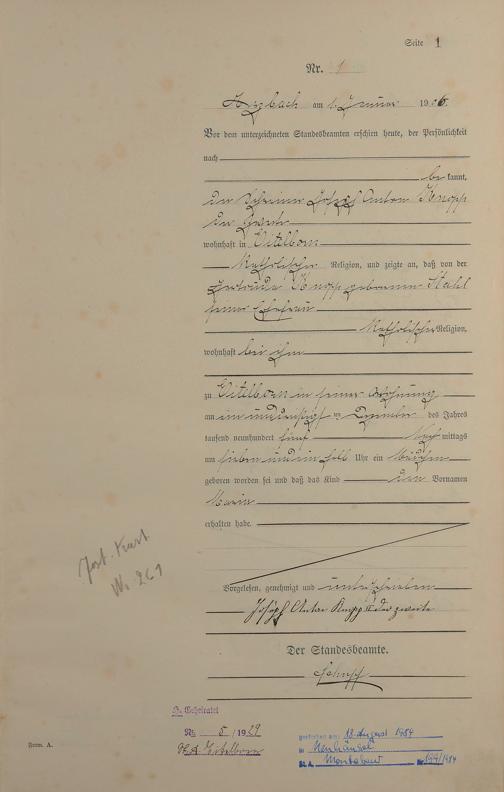 Seite 1
Nr. 1
Arzbach am 2. Januar 1906.
Vor dem unterzeichneten Standesbeamten erschien heute, der Persönlichkeit
nach
be kannt,
der Schreiner Josef Anton Knopp
der Zweite
wohnhaft in Eitelborn
katholischer Religion, und zeigte an, daß von der
Gertrude Knopp geborenen Stahl
seiner Ehefrau
katholischer Religion,
wohnhaft bei ihm
zu Eitelborn in seiner Wohnung
am ein und dreißigsten Dezember des Jahres
tausend neunhundert fünf Nach mittags
um sieben und ein halb Uhr ein Mädchen
geboren worden sei und daß das Kind den Vornamen
Maria
erhalten habe.
Vorgelesen, genehmigt und unterschrieben
Joseph Anton Knopp II der zweite
Der Standesbeamte.
Form. A.
Nr. 5 / 1929
St.A. Eitelborn
gestorben am: 18. August 1984
in Neuhäusel
St. A. Montabaur Nr. 199/1984